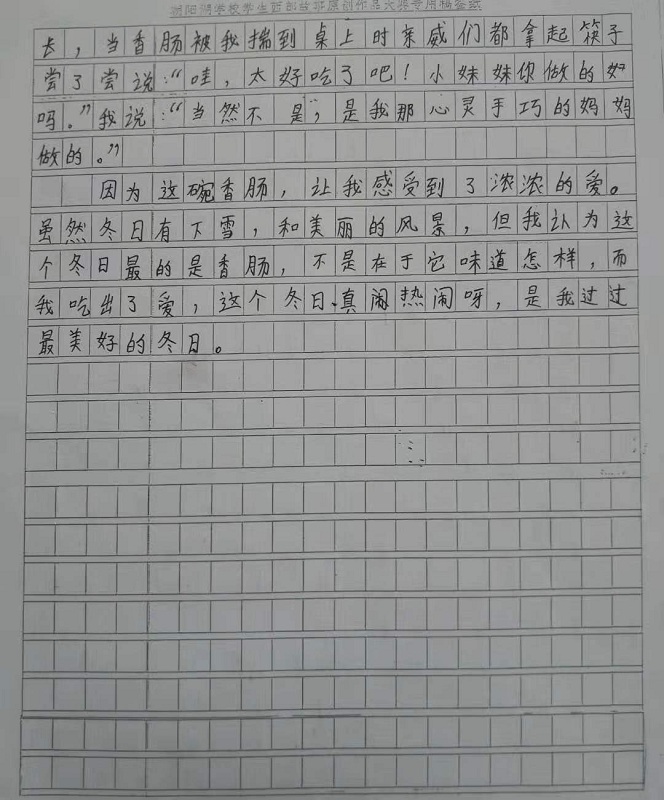 长，当香肠被我揣到桌上时亲戚们都拿起筷子
尝了尝说：“哇，太好吃了吧！小妹妹你做的好
吗。”我说：“当然不是，是我那心灵手巧的妈妈
做的。”
因为这碗香肠，让我感受到了浓浓的爱。
虽然冬日有下雪，和美丽的风景，但我认为这
个冬日最的是香肠，不是在于它味道怎样，而
我吃出了爱，这个冬日、真闹热闹呀，是我过过
最美好的冬日。